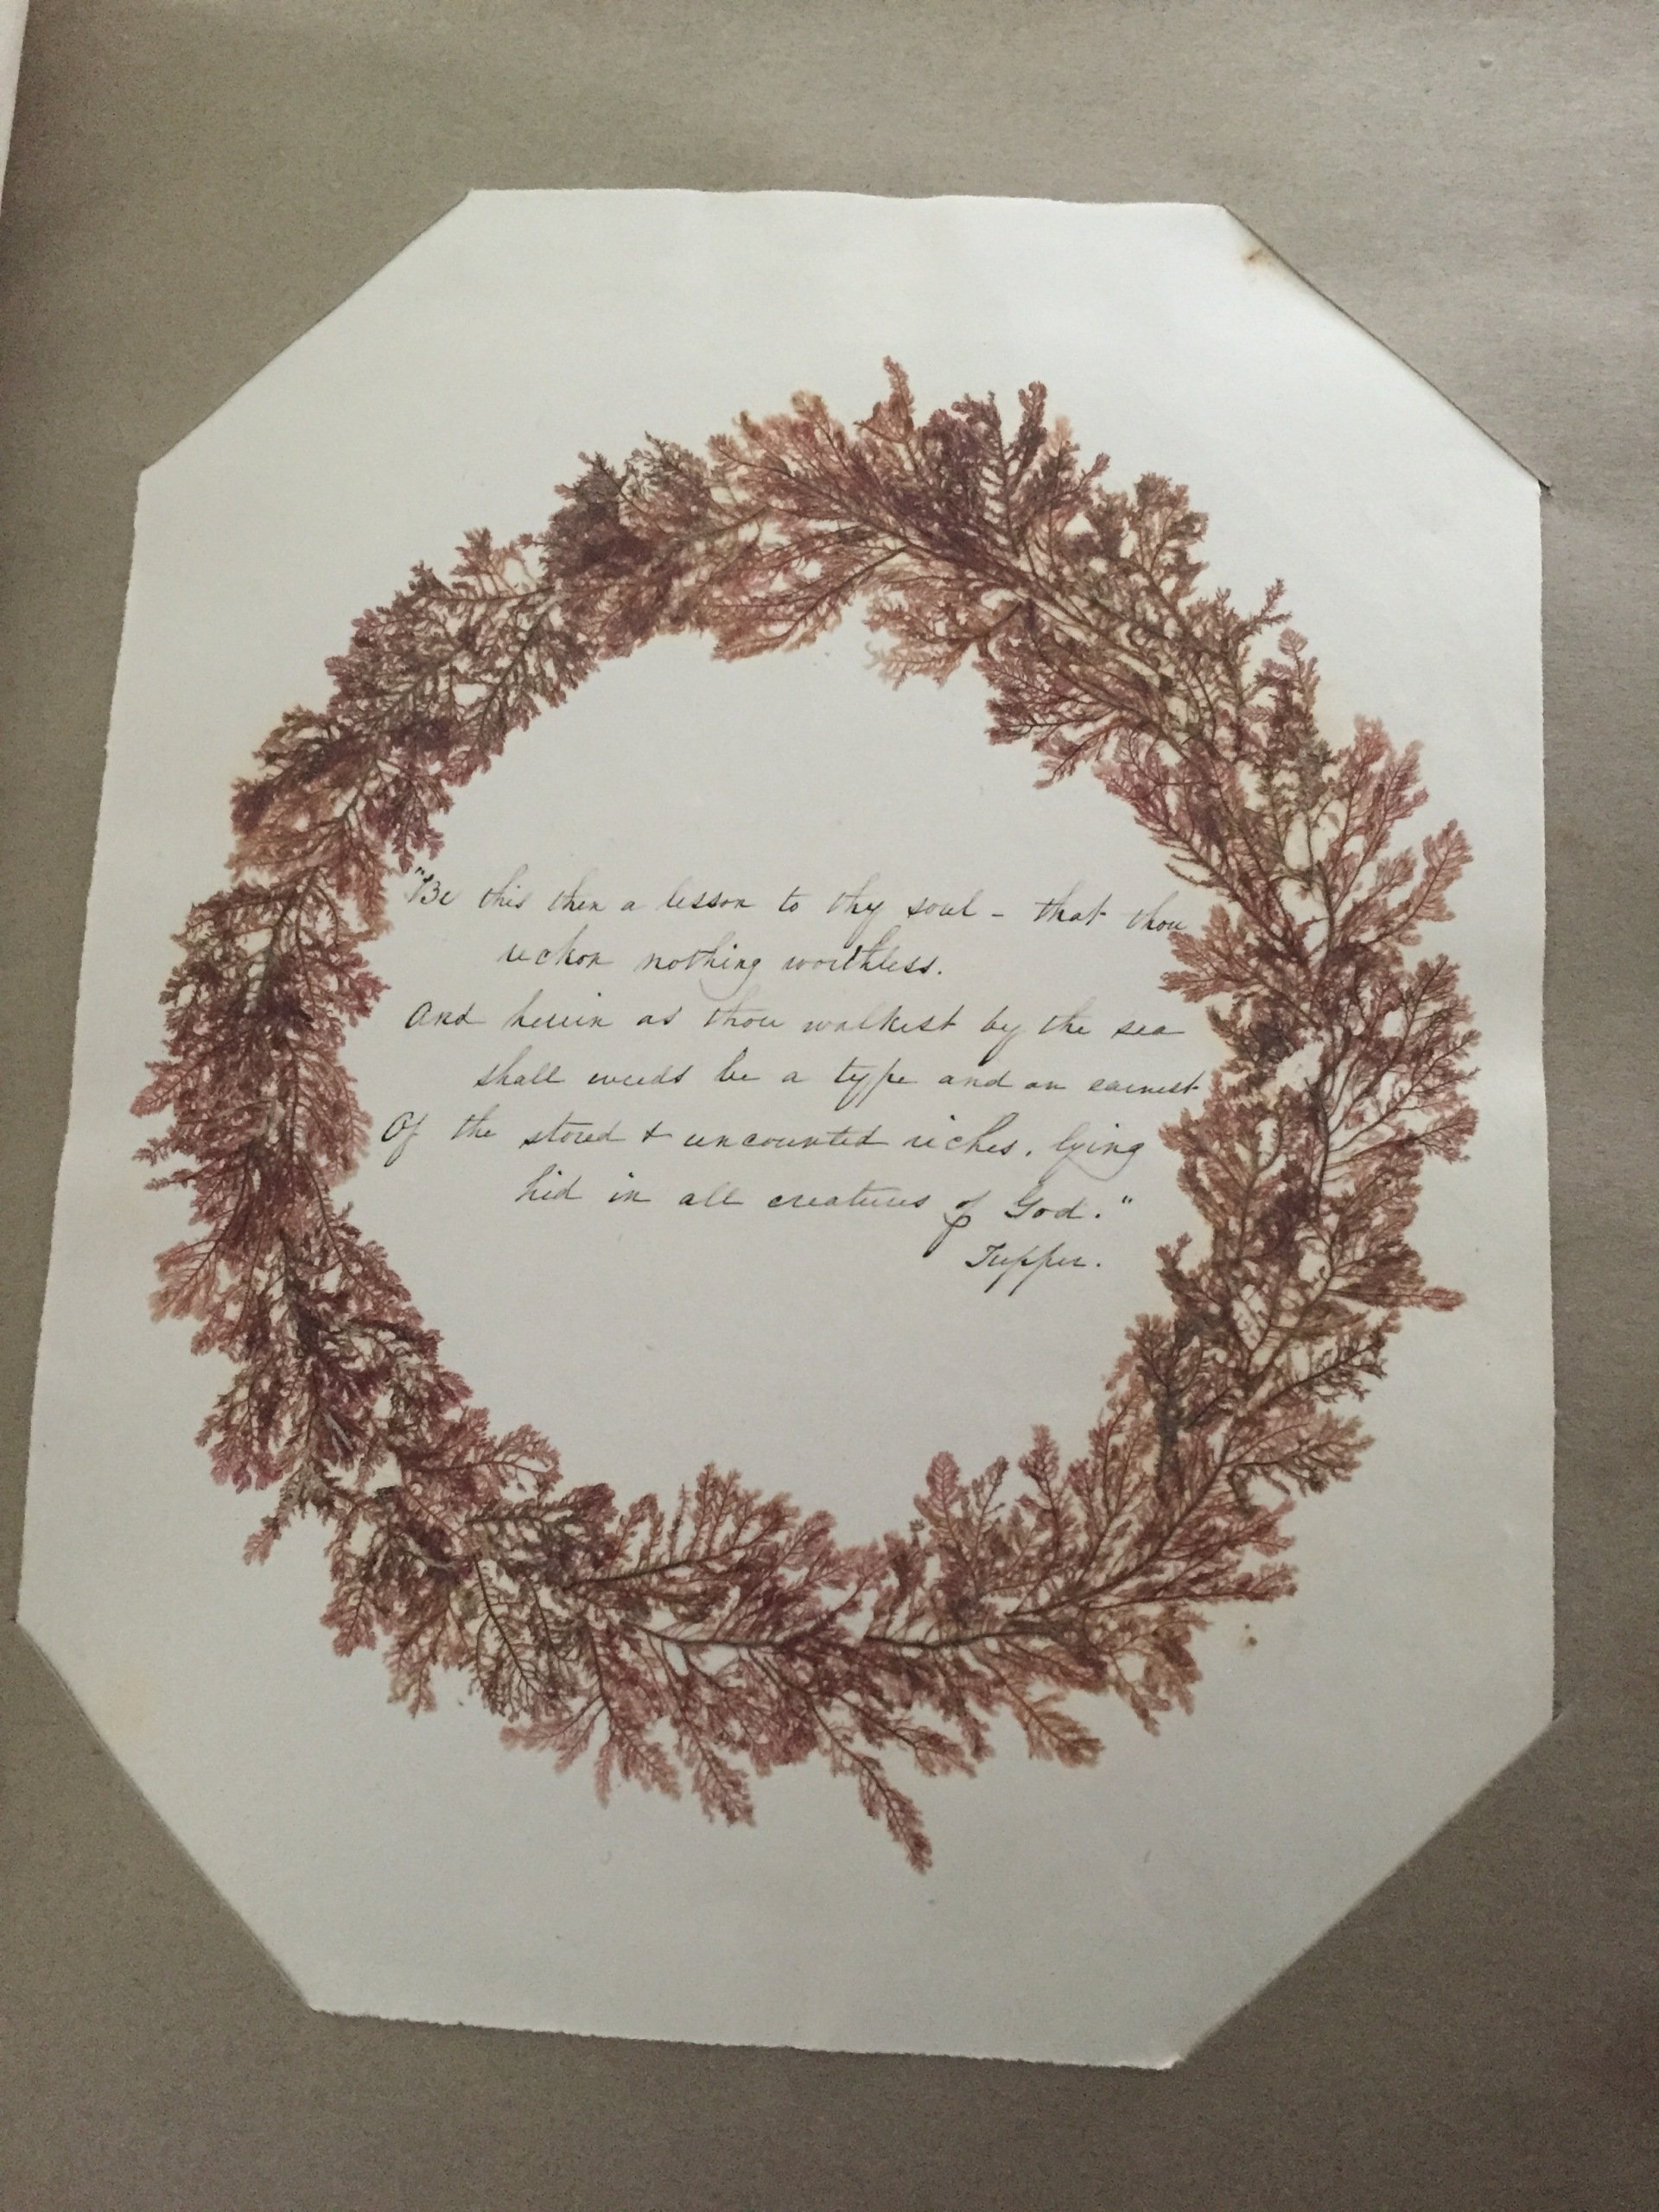 "Be this then a lesson to thy soul - that thou
reckon nothing worthless.
And herein as thou walkest by the sea
shall weeds be a type and an earnest
Of the stored & uncounted riches, lying
hid in all creatures of God."
Tupper.